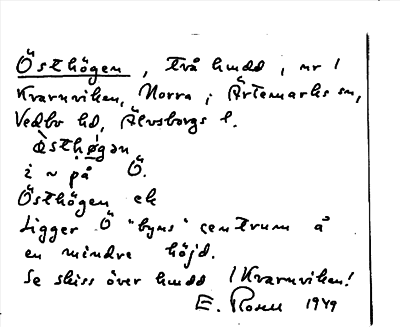 Östhögen, två hmdd, nr 1
Kvarnviken, Norra; Ärtemarks sn,
Vedbo hd, Älvsborgs l.
æ̀sthøgən
i ~ på Ö.
Östhögen ek
Ligger Ö "byns" centrum å
en mindre höjd.
Se skiss över hmdd i Kvarnviken!
E. Rosell 1949